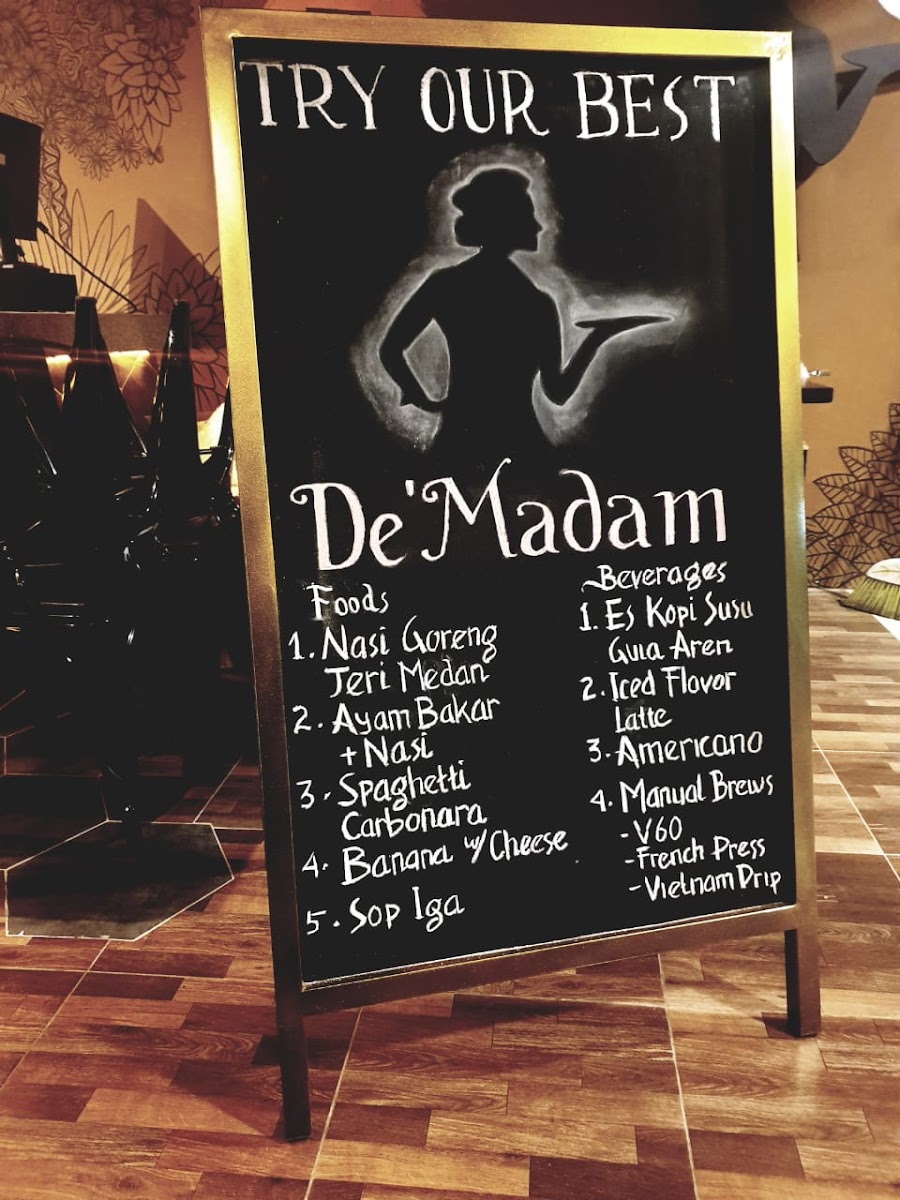 TRY OUR BEST
De'Madam
Foods
1. Nasi Goreng
Teri Medan
2. Ayam Bakar
+ Nasi
3. Spaghetti
Carbonara
4. Banana w/ Cheese
5. Sop Iga
Beverages
1. Es Kopi Susu
Gula Aren
2. Iced Flavor
Latte
3. Americano
4. Manual Brews
- V60
- French Press
- Vietnam Drip